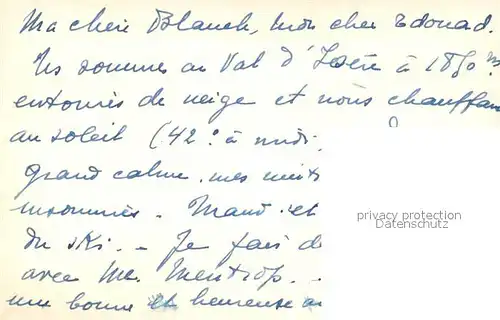 Ma chère Blanch, mon cher Edouard.
Ns sommes au Val d'Isère à 1850 m.
entourés de neige et nous chauffan
au soleil (42° à midi.
grand calme, mes nuits
insomnies - Maud et
du ski. - Je fais d
avec Me. Mentrop. -
une bonne et heureuse an
privacy protection
Datenschutz